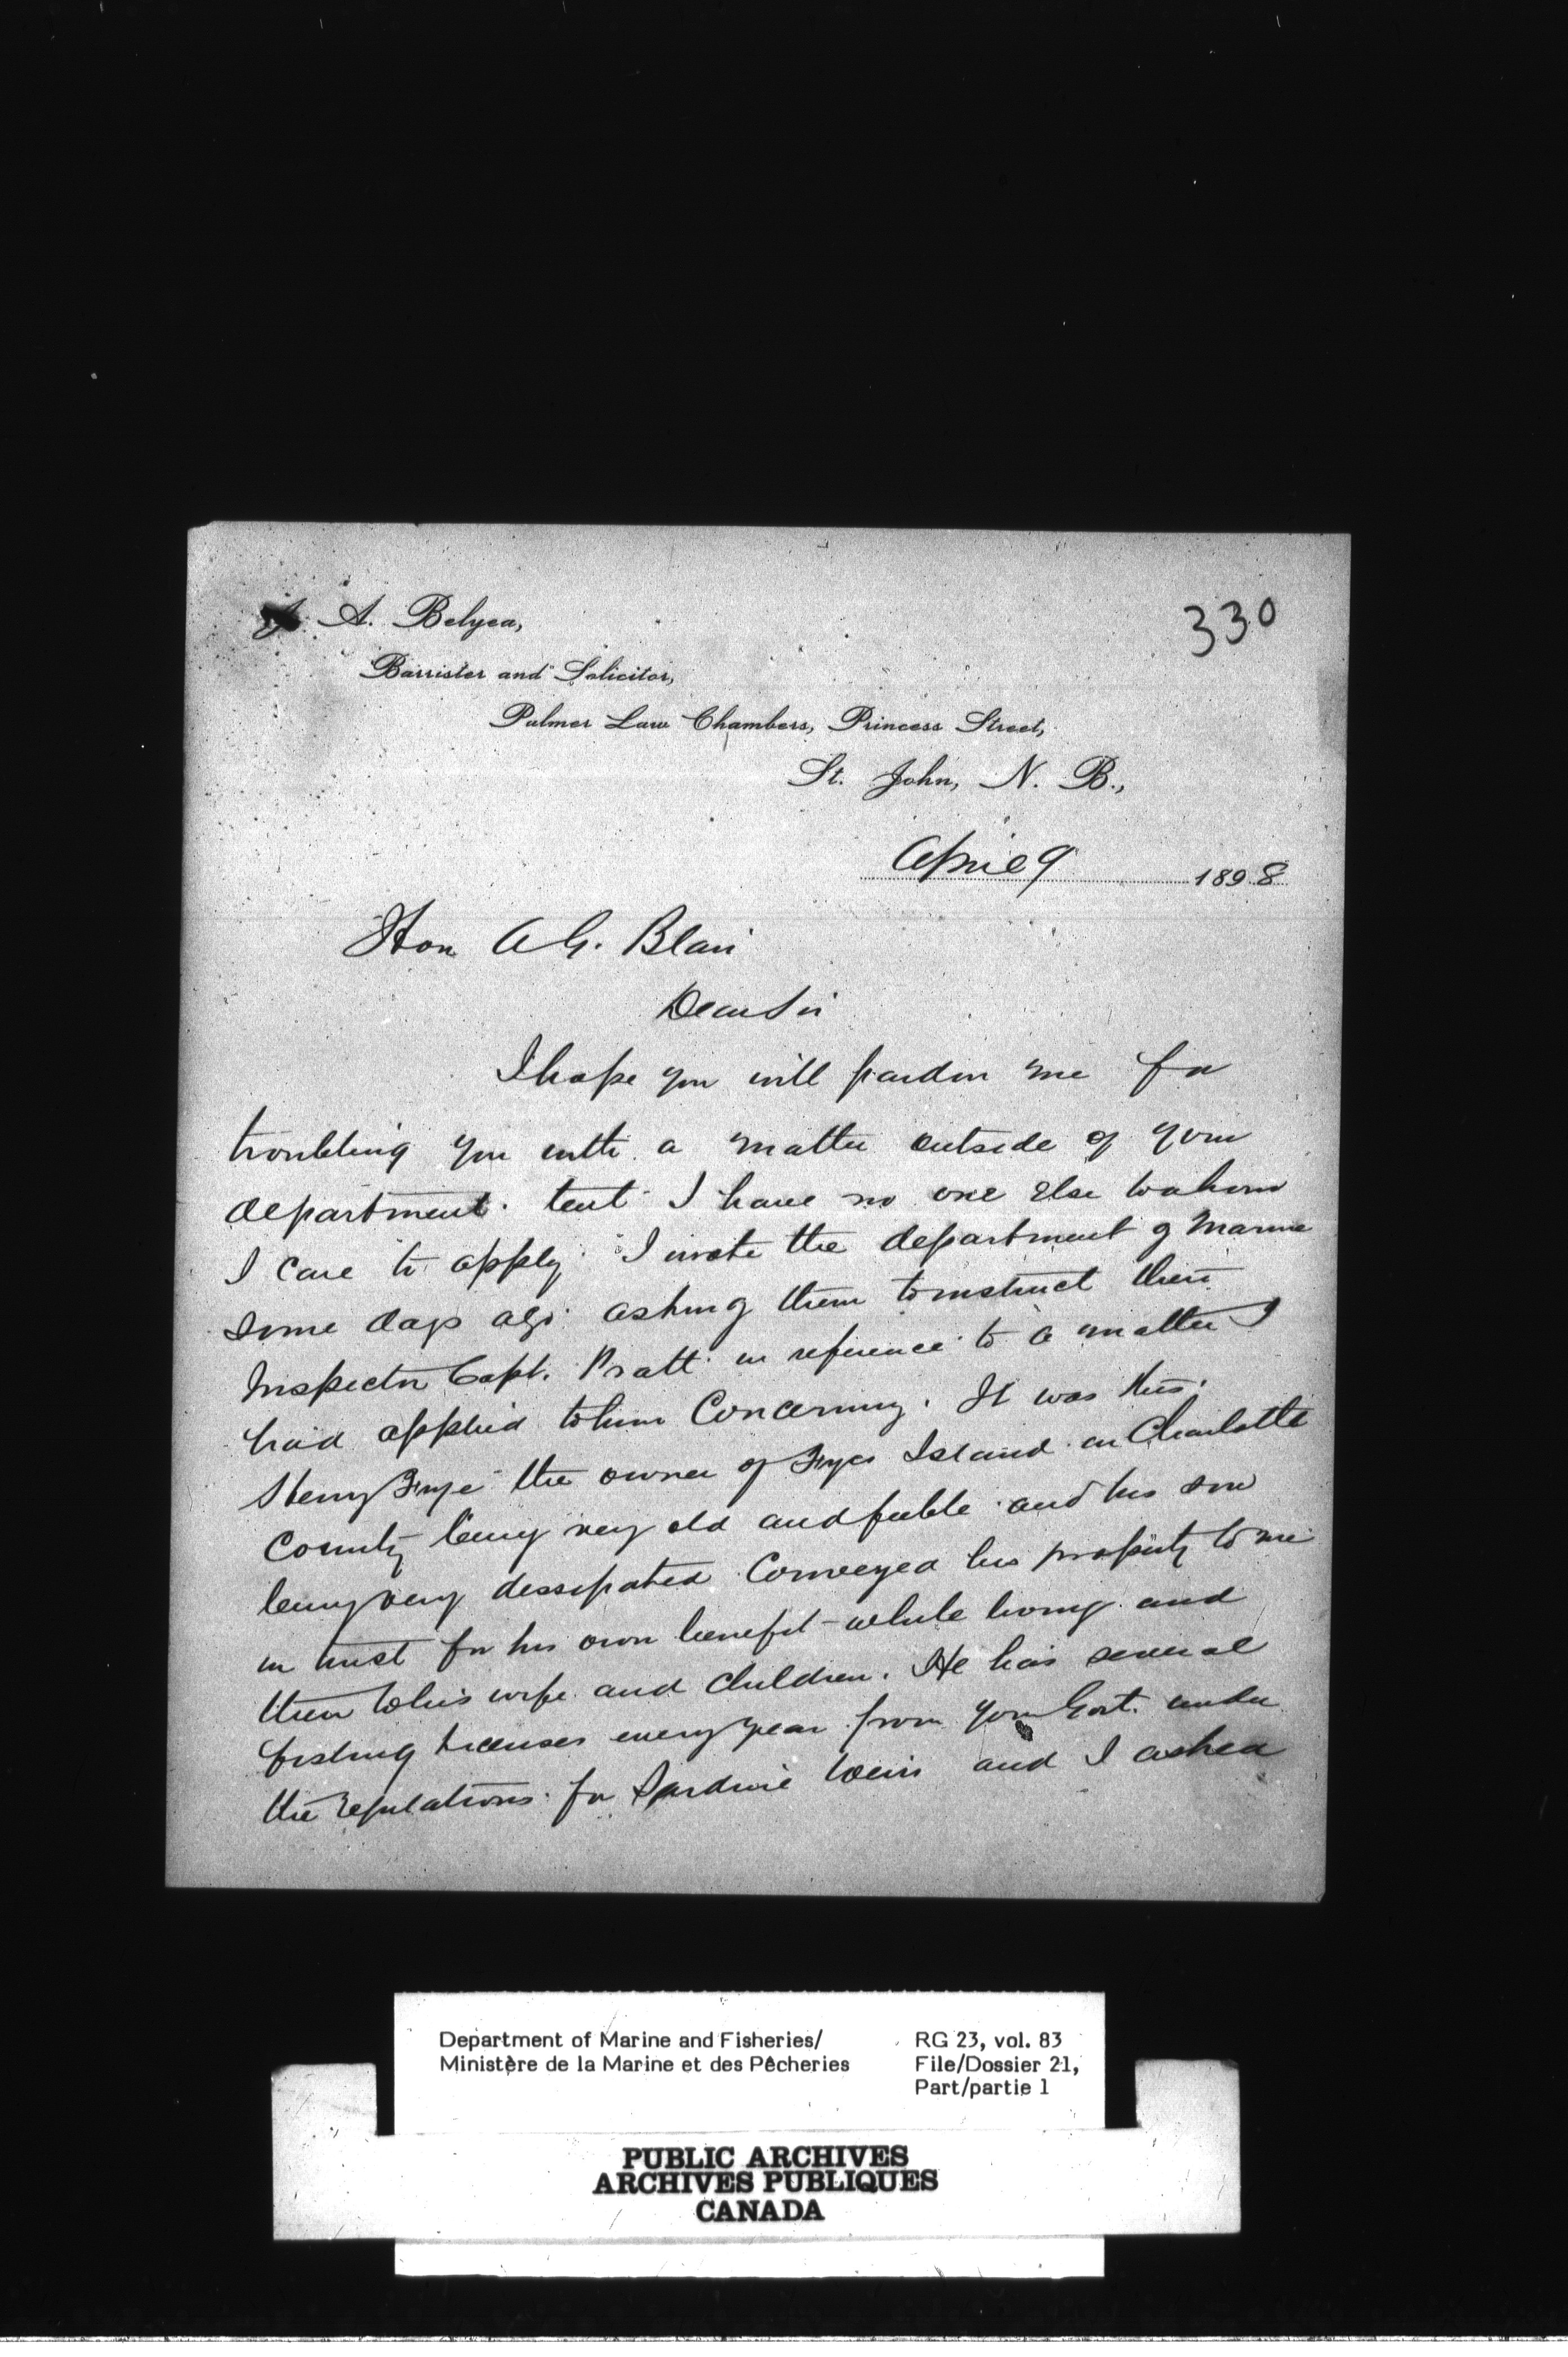 J. A. Belyea,
330
Barrister and Solicitor,
Palmer Law Chambers, Princess Street,
St. John, N. B.,
April 9 1898
Hon A G. Blair
Dear Sir
I hope you will pardon me for
troubling you with a matter outside of your
department. but I have no one else to whom
I care to apply. I wrote the department of Marine
some days ago asking them to instruct their
Inspector Capt. Pratt in reference to a matter I
had applied to him concerning. It was this.
Henry Frye the owner of Fryes Island in Charlotte
County being very old and feeble and his son
being very dissipated conveyed his property to me
in trust for his own benefit while living and
then to his wife and children. He has several
fishing licenses every year from your Govt. under
the regulations for Sardine Weirs and I asked
Department of Marine and Fisheries/
Ministère de la Marine et des Pêcheries
RG 23, vol. 83
File/Dossier 21,
Part/partie 1
PUBLIC ARCHIVES
ARCHIVES PUBLIQUES
CANADA